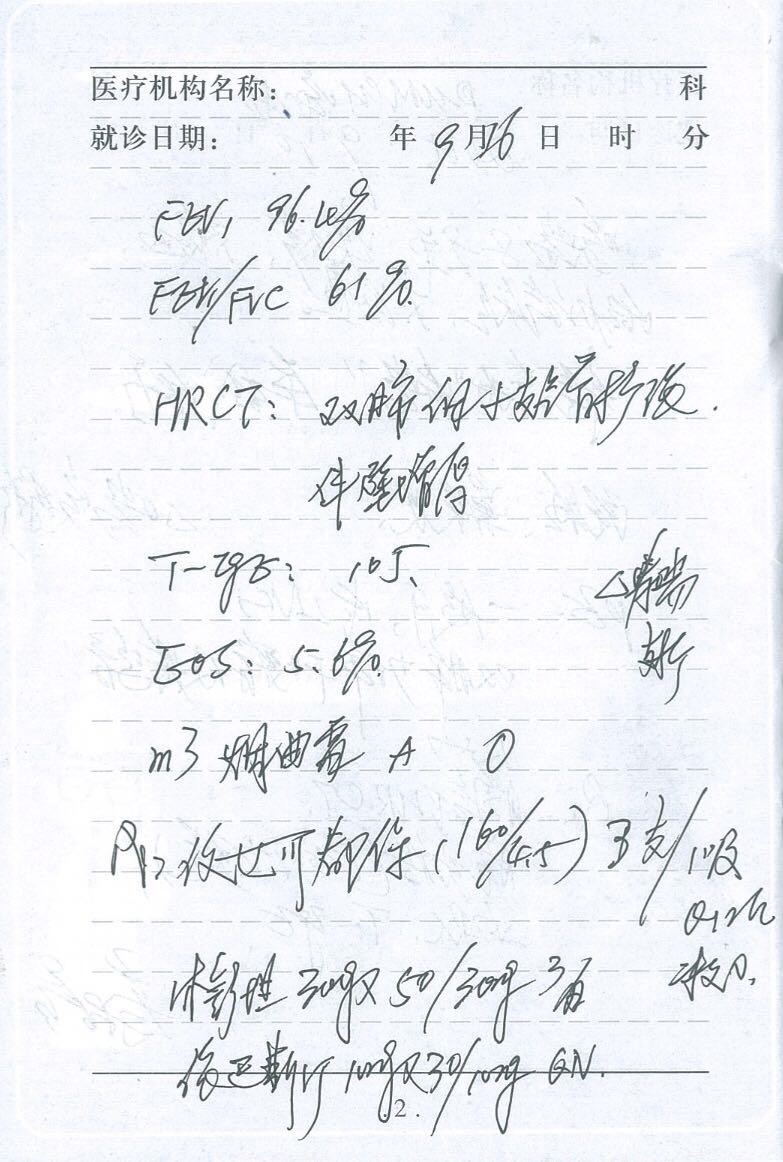 医疗机构名称： 科
就诊日期： 年 9 月 26 日 时 分
FEV₁ 96.10%
FEV₁/FVC 61%
HRCT： 双肺细支气管扩张.
伴壁增厚
T-IgE： 105.
EOS：5.6%
m3 烟曲霉 A 0
Rp: 信必可都保 (160/4.5) 3支/1吸
Q12h
沐舒坦 30mg X 50/30mg 3/日
10mg X 30/10mg QN.
.2.